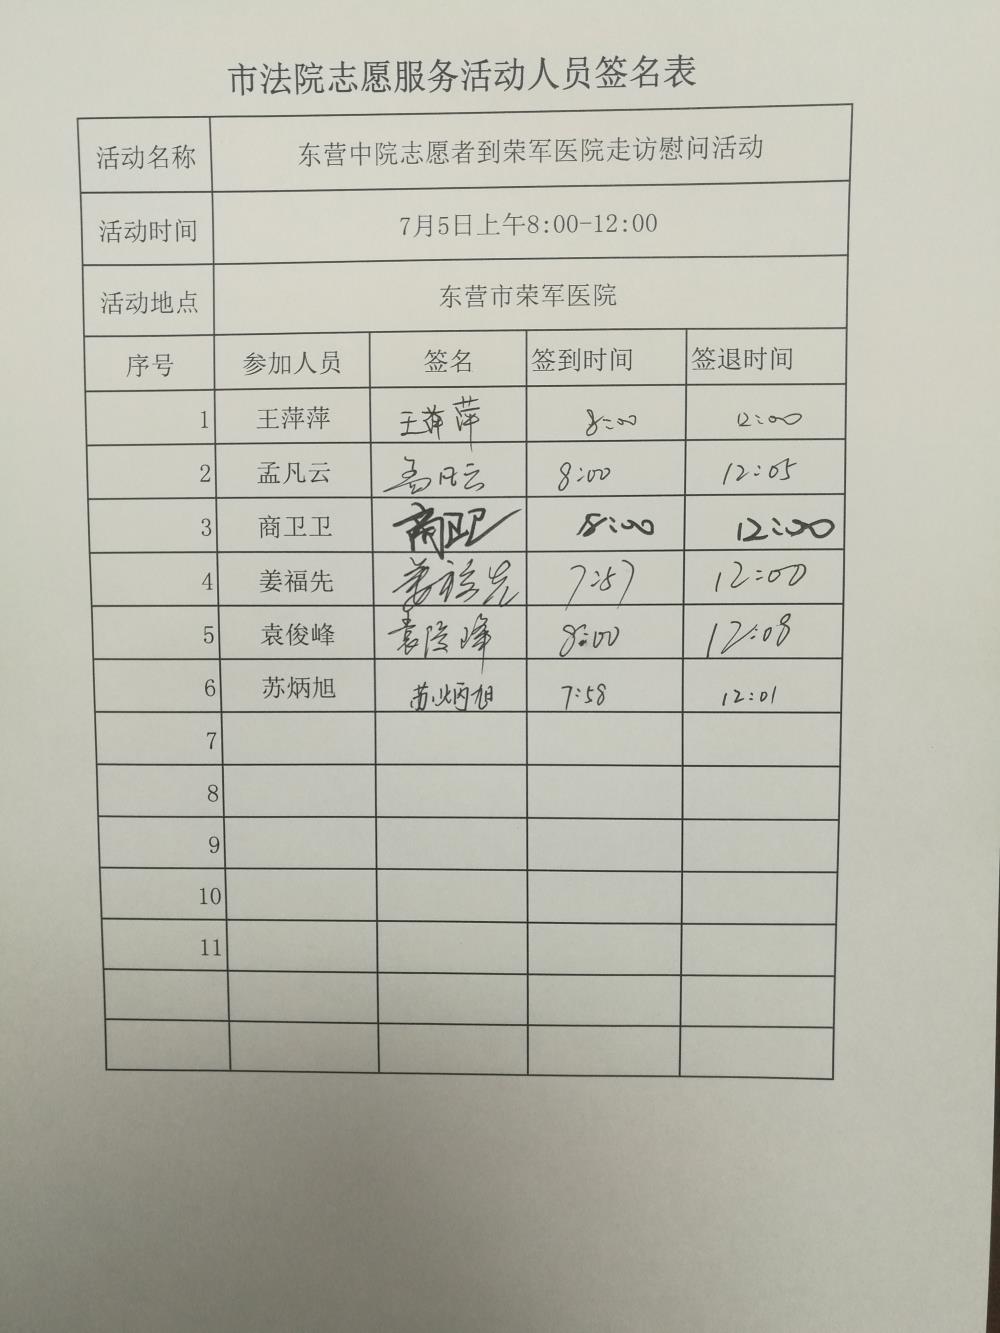 市法院志愿服务活动人员签名表
活动名称 东营中院志愿者到荣军医院走访慰问活动
活动时间 7月5日上午8:00-12:00
活动地点 东营市荣军医院
序号 参加人员 签名 签到时间 签退时间
1 王萍萍 王萍萍 8:00 12:00
2 孟凡云 孟凡云 8:00 12:05
3 商卫卫 商卫卫 8:00 12:00
4 姜福先 姜福先 7:57 12:00
5 袁俊峰 袁俊峰 8:00 12:08
6 苏炳旭 苏炳旭 7:58 12:01
7
8
9
10
11